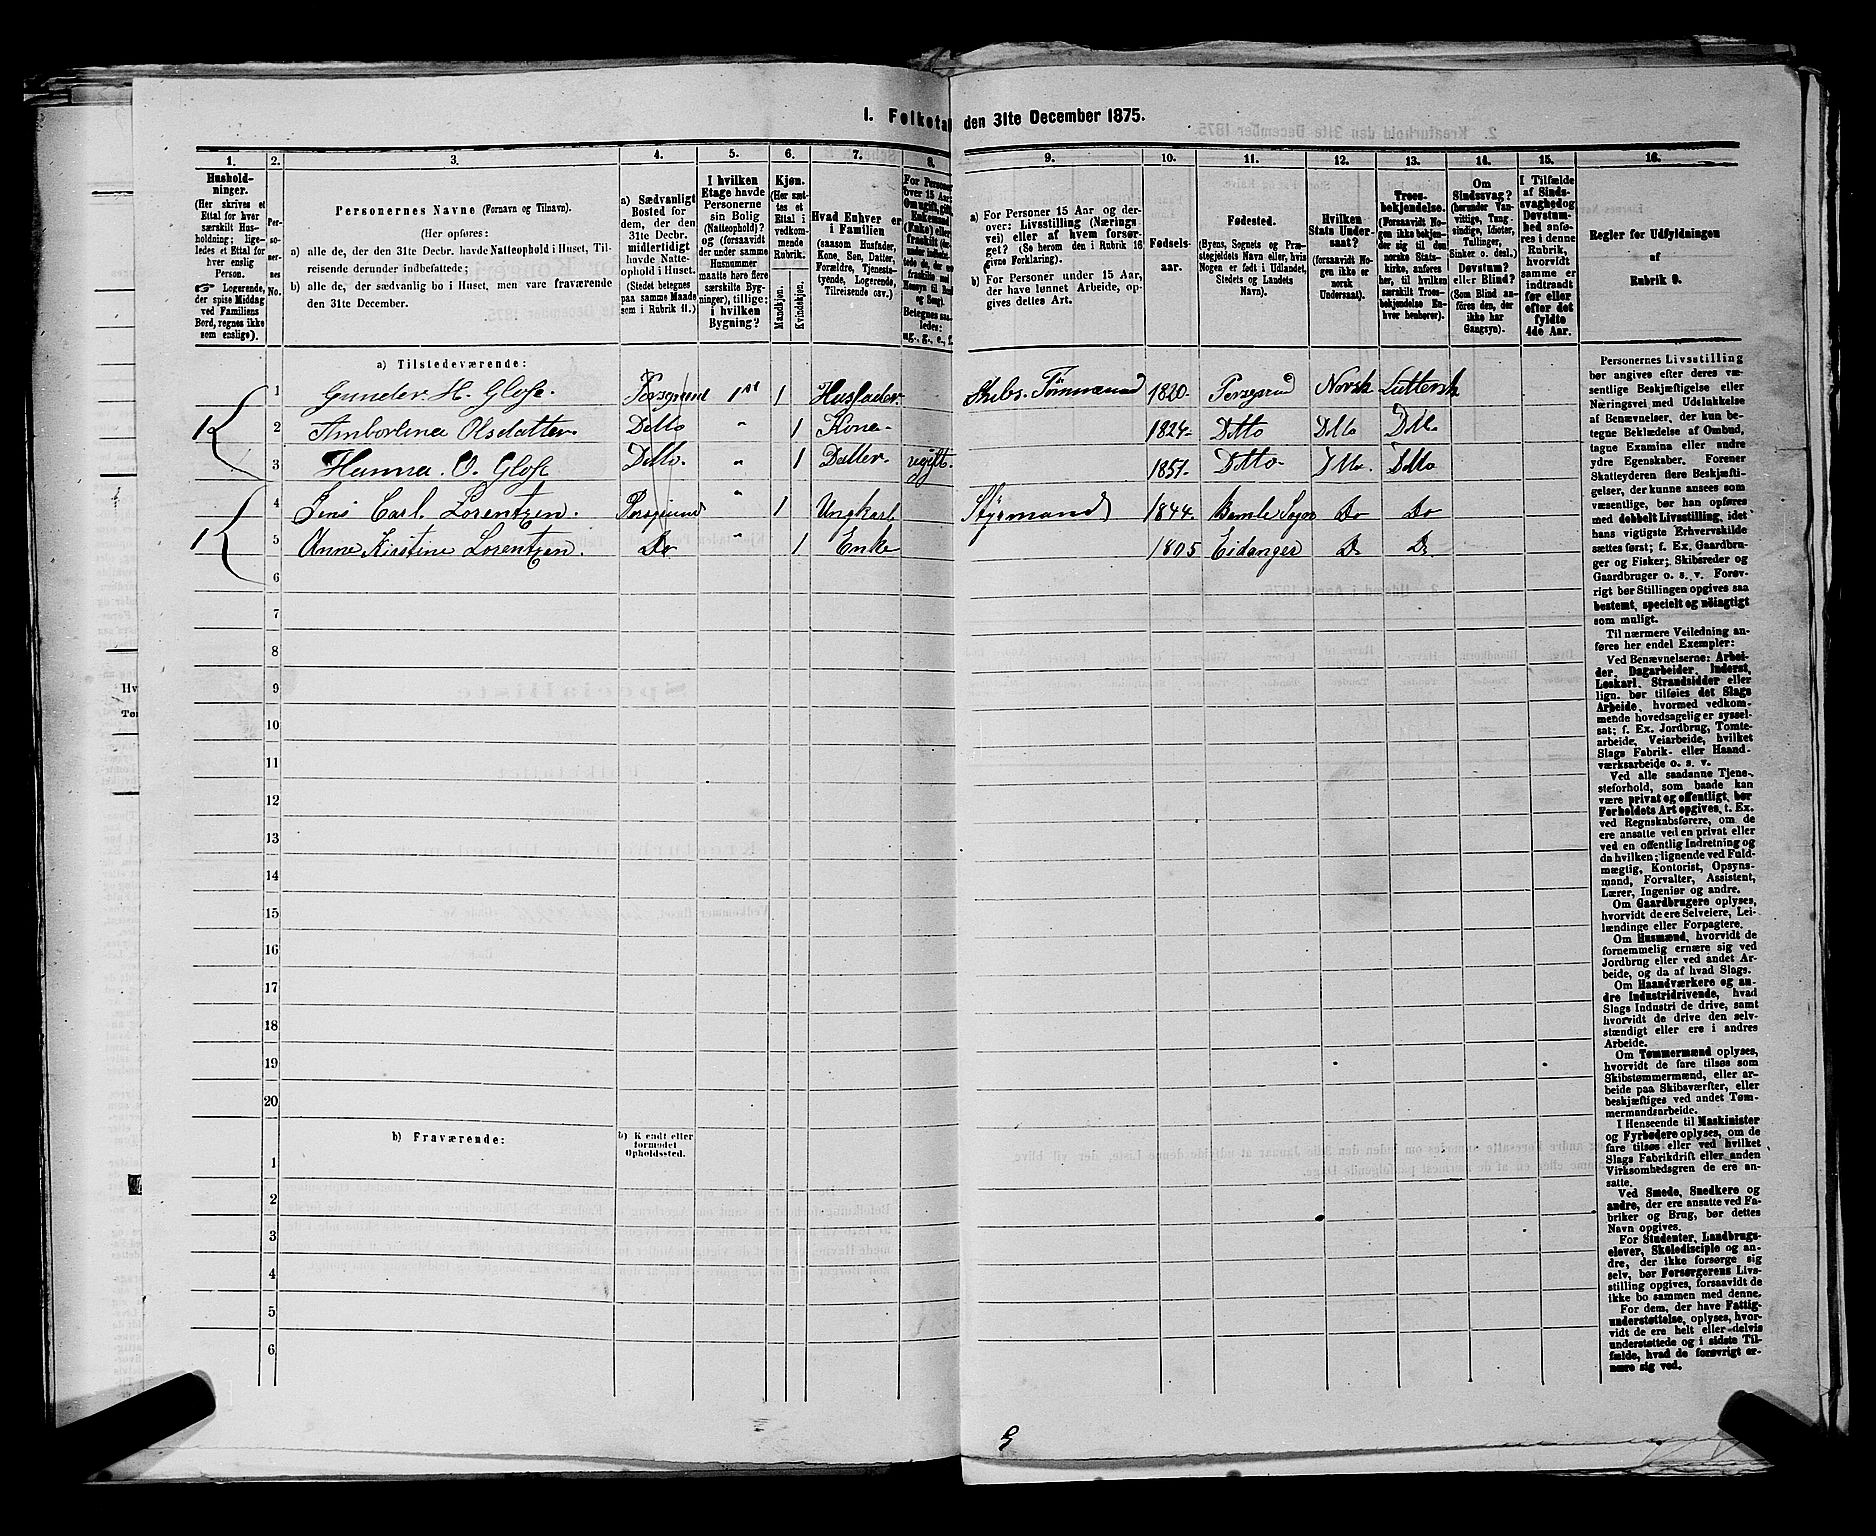 1. Folketal den 31te December 1875.
1. 2. 3. 4. 5. 6. 7. 8. 9. 10. 11. 12. 13. 14. 15. 16.
Husholdninger.
(Her skrives et Ettal for hver særskilt Husholdning; ligeledes et Ettal for hver enslig Person.
☞ Logerende, der spise Middag ved Familiens Bord, regnes ikke som enslige).
Personernes No.
Personernes Navne (Fornavn og Tilnavn).
(Her opføres:
a) alle de, der den 31te Decbr. havde Natteophold i Huset, Tilreisende derunder indbefattede;
b) alle de, der sædvanlig bo i Huset, men vare fraværende den 31te December.
a) Sædvanligt Bosted for dem, der den 31te Decbr. midlertidigt havde Natteophold i Huset.
(Stedet betegnes paa samme Maade som i Rubrik 11.)
I hvilken Etage havde Personerne sin Bolig (Natteophold)? og (forsaavidt der under samme Husnummer maatte høre flere særskilte Bygninger), tillige: i hvilken Bygning?
Kjøn.
(Her sættes et Ettal i vedkommende Rubrik.
Mandkjøn. Kvindekjøn.
Hvad Enhver er i Familien
(saasom Husfader, Kone, Søn, Datter, Forældre, Tjenestetyende, Logerende, Tilreisende osv.)
a) For Personer 15 Aar og derover: Livsstilling (Næringsvei) eller af hvem forsørget? (Se herom den i Rubrik 16 givne Forklaring).
b) For Personer under 15 Aar, der have lønnet Arbeide, opgives dettes Art.
Fødselsaar.
Fødested.
(Byens, Sognets og Præstegjeldets Navn eller, hvis Nogen er født i Udlandet, Stedets og Landets Navn).
Hvilken Stats Undersaat?
(forsaavidt Nogen ikke er norsk Undersaat).
Troesbekjendelse.
(Forsaavidt Nogen ikke bekjender sig til den norske Statskirke, anføres her, til hvilken særskilt Troesbekjendelse Enhver henhører).
Om Sindssvag? (herunder Vanvittige, Tungsindige, Idioter, Tullinger, Sinker o. desl.)
Døvstum? eller Blind?
(Som Blind anføres den, der ikke har Gangsyn).
I Tilfælde af Sindssvaghed og Døvstumhed anføres i denne Rubrik, hvorvidt samme er indtraadt før eller efter det fyldte 4de Aar.
Regler for Udfyldningen
af
Rubrik 9.
a) Tilstedeværende:
1 Gunder. H. Glose. Porsgrund 1st 1 Husfader Skibs. Tømmermand 1820. Porsgrund Norsk Luthersk
1 2 Amborlina Olsdatter. Ditto " 1 Kone 1824. Ditto Ditto Ditto
3 Hanna. O. Glose Ditto. " 1 Datter ugift. 1851. Ditto Ditto. Ditto
4 Jens Carl Lorentzen. Porsgrund " 1 Ungkarl Styrmand 1844. Bamle Sogn Do Do
1 5 Anne Kirstine Lorentzen. Do " 1 Enke 1805 Eidanger Do Do
6
7
8
9
10
11
12
13
14
15
16
17
18
19
20
b) Fraværende:
b) Kjendt eller formodet Opholdssted.
1
2
3
4
5
6
Personernes Livsstilling
bør angives efter deres væ-
sentlige Beskjæftigelse eller
Næringsvei med Udelukkelse
af Benævnelser, der kun be-
tegne Beklædelse af Ombud,
tagne Examina eller andre
ydre Egenskaber. Forener
Skatteyderen flere Beskjæfti-
gelser, der kunne ansees som
væsentlige, bør han opføres
med dobbelt Livsstilling, idet
hans vigtigste Erhvervskilde
sættes først; f. Ex. Gaardbru-
ger og Fisker; Skibsreder og
Gaardbruger o. s. v. Forøv-
rigt bør Stillingen opgives saa
bestemt, specielt og nöiagtigt
som muligt.
Til nærmere Veiledning an-
føres her endel Exempler:
Ved Benævnelserne: Arbei-
der, Dagarbeider, Inderst,
Løskarl, Strandsidder eller
lign. bør tilføies det Slags
Arbeide, hvormed vedkom-
mende hovedsagelig er syssel-
sat; f. Ex. Jordbrug, Tomte-
arbeide, Veiarbeide, hvilket
Slags Fabrik- eller Haand-
værksarbeide o. s. v.
Ved alle saadanne Tjene-
steforhold, som baade kan
være privat og offentligt, bør
Forholdets Art opgives, t. Ex.
ved Regnskabsførere, om de
ere ansatte ved en privat eller
ved en offentlig Indretning og
da hvilken; lignende ved Fuld-
mægtig, Kontorist, Opsyns-
mand, Forvalter, Assistent,
Lærer, Ingeniør og andre.
Om Gaardbrugere oplyses,
hvorvidt de ere Selveiere, Lei-
lændinge eller Forpagtere.
Om Husmænd, hvorvidt de
fornemmelig ernære sig ved
Jordbrug eller ved andet Ar-
beide, og da af hvad Slags.
Om Haandværkere og an-
dre Industridrivende, hvad
Slags Industri de drive, samt
hvorvidt de drive den selv-
stændigt eller ere i andres
Arbeide.
Om Tømmermænd oplyses,
hvorvidt de fare tilsøs som
Skibstømmermænd, eller ar-
beide paa Skibsværfter, eller
beskjæftiges ved andet Tøm-
mermandsarbeide.
I Henseende til Maskinister
og Fyrbødere oplyses, om de
fare tilsøs eller ved hvilket
Slags Fabrikdrift eller anden
Virksomhedsgren de ere an-
satte.
Ved Smede, Snedkere og
andre, der ere ansatte ved Fa-
briker og Brug, bør dettes
Navn opgives.
For Studenter, Landbrugs-
elever, Skoledisciple og an-
dre, der ikke forsørge sig
selv, bør Forsørgerens Livs-
stilling opgives, forsaavidt de
ikke bo sammen med denne.
For dem, der have Fattig-
understøttelse, oplyses, hvor-
vidt de ere helt eller delvis
understøttede og i sidste Til-
fælde, hvad de forøvrigt er-
nære sig ved.